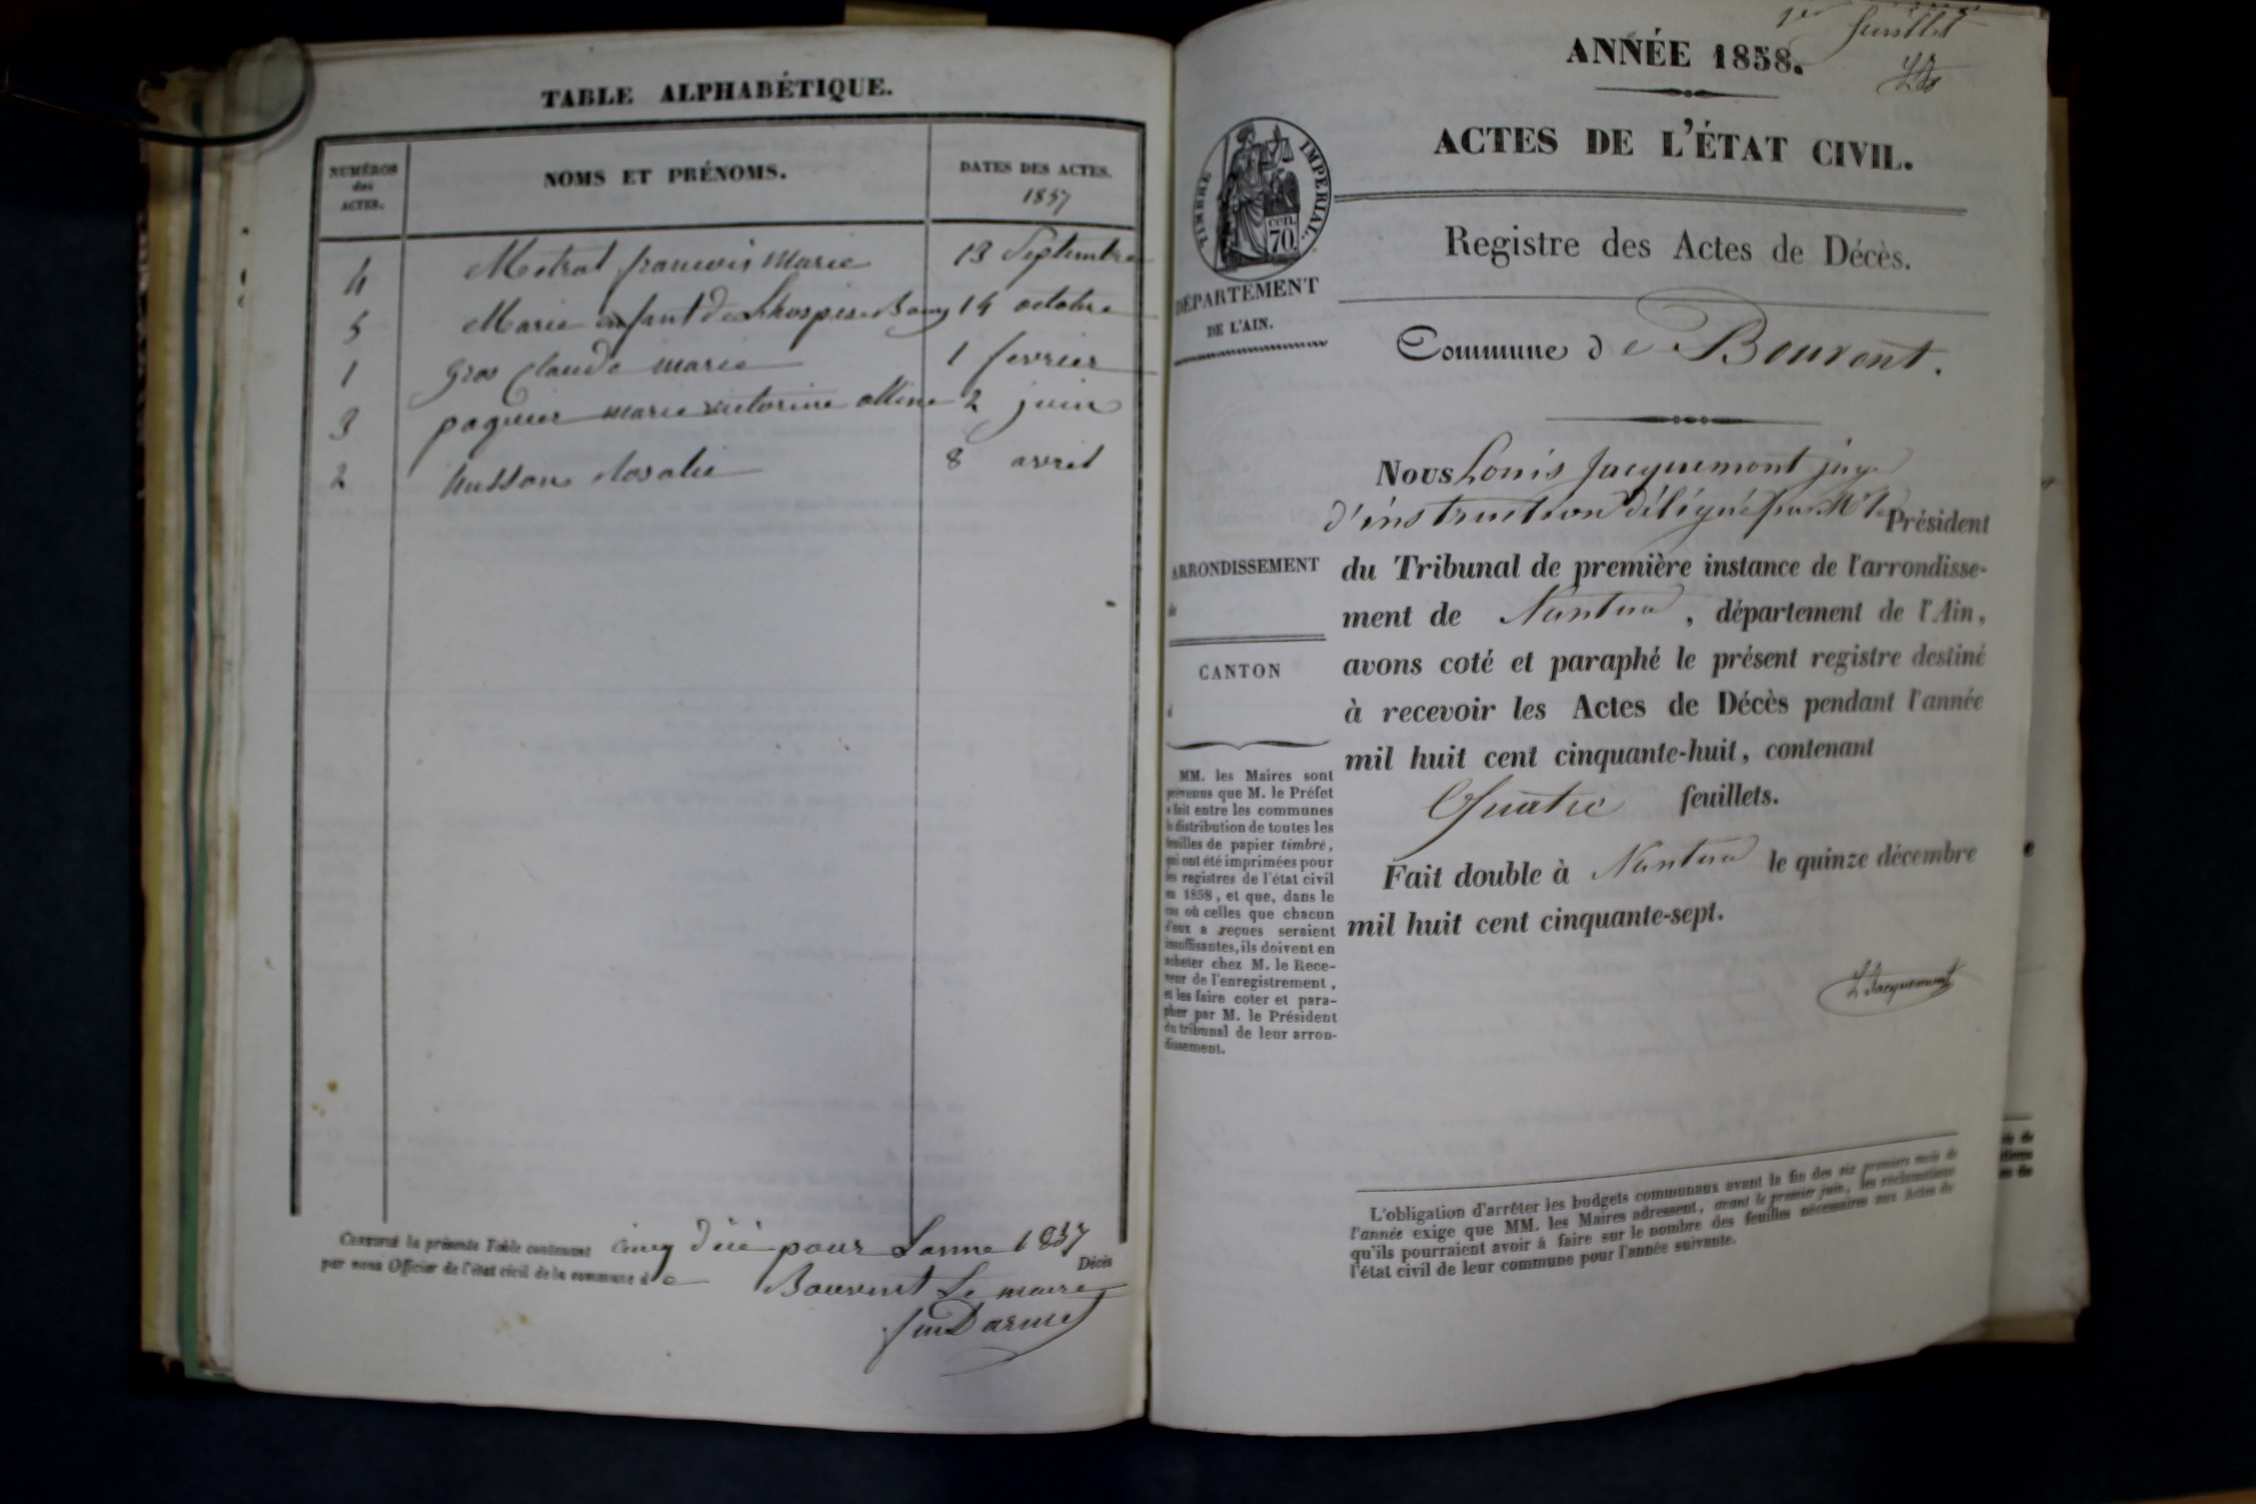 TABLE ALPHABÉTIQUE.
NUMÉROS
des
ACTES.
NOMS ET PRÉNOMS.
DATES DES ACTES.
1857
4 Mestral francois Marie 13 Septembre
5 Marie enfant de Lhospise Bourg 14 octobre
1 gros Claude marie 1 fevrier
3 marie victorine 2 juin
2 husson Rosalie 8 avril
CERTIFIÉ la présente Table contenant cinq pour Lanne 1857
Décès
par nous Officier de l'état civil de la commune de Bouvent Le maire
1er feuillet
ANNÉE 1858.
ACTES DE L'ÉTAT CIVIL.
TIMBRE IMPERIAL.
cen.
70
Registre des Actes de Décès.
DÉPARTEMENT
DE L'AIN.
Commune de Bouvent.
Nous Louis Jacquemont juge
d'instruction délégué par Mr le Président
ARRONDISSEMENT
de
du Tribunal de première instance de l'arrondisse-
ment de Nantua, département de l'Ain,
avons coté et paraphé le présent registre destiné
à recevoir les Actes de Décès pendant l'année
mil huit cent cinquante-huit, contenant
Quatre feuillets.
Fait double à Nantua le quinze décembre
mil huit cent cinquante-sept.
L Jacquemont
CANTON
d
MM. les Maires sont
prévenus que M. le Préfet
a fait entre les communes
la distribution de toutes les
feuilles de papier timbré,
qui ont été imprimées pour
les registres de l'état civil
en 1858, et que, dans le
cas où celles que chacun
d'eux a reçues seraient
insuffisantes, ils doivent en
acheter chez M. le Rece-
veur de l'enregistrement,
et les faire coter et para-
pher par M. le Président
du tribunal de leur arron-
dissement.
L'obligation d'arrêter les budgets communaux avant la fin des six premiers mois de
l'année exige que MM. les Maires adressent, avant le premier juin, les réclamations
qu'ils pourraient avoir à faire sur le nombre des feuilles nécessaires aux Actes de
l'état civil de leur commune pour l'année suivante.